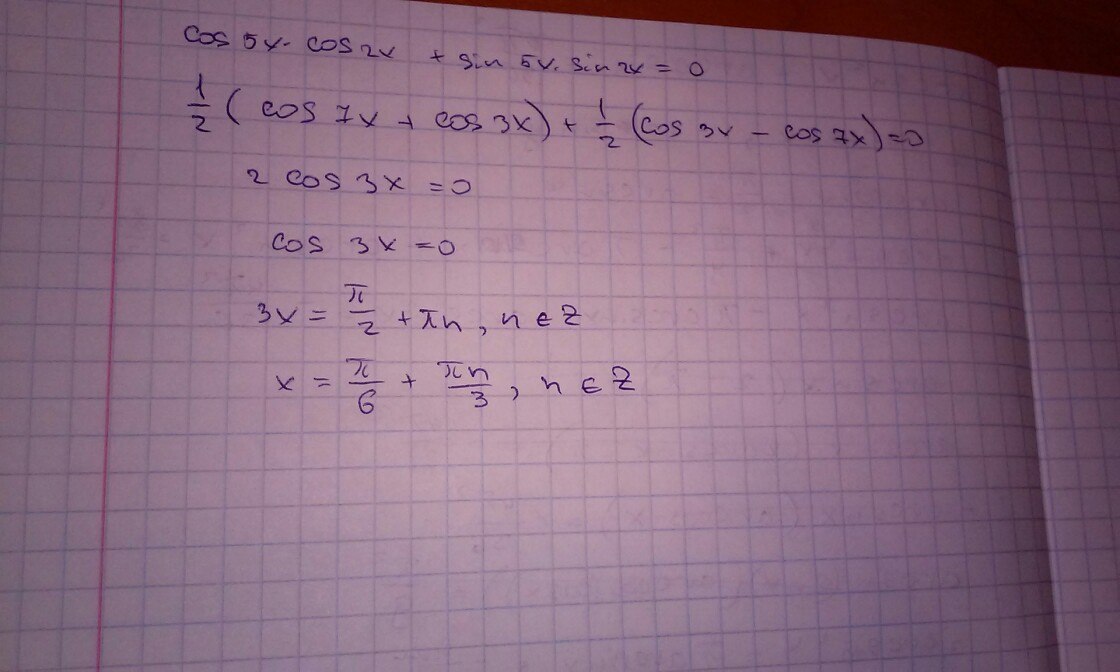 cos 5x · cos 2x + sin 5x · sin 2x = 0
1/2 ( cos 7x + cos 3x) + 1/2 (cos 3x − cos 7x) = 0
2 cos 3x = 0
cos 3x = 0
3x = π/2 + πn, n ∈ Z
x = π/6 + πn/3, n ∈ Z